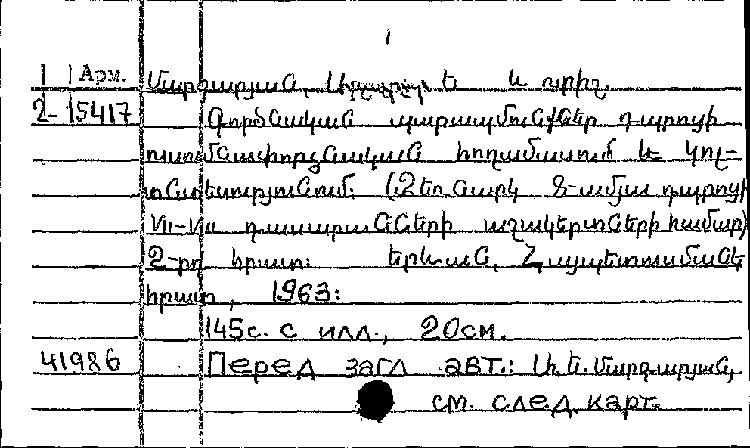 Арм. Մարգարյան, Ե և ուրիշ.
2-15417 Գործնական պարապմունքներ դպրոցի
ուսումնափորձնական հողամասում և կոլ-
տնտեսությունում: (Ձեռնարկ 8-ամյա դպրոցի
VII-VIII դասարանների աշակերտների համար)
2-րդ հրատ: Երևան, Հայպետուսմանկ
հրատ, 1963:
145с. с илл., 20см.
41986 Перед загл авт.: Մարգարյան,
см. след. карт.